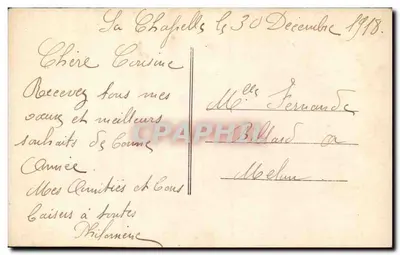 La Chapelle le 30 Décembre 1918.
Chère Cousine
Recevez tous mes
voeux et meilleurs
souhaits de bonne
Année.
Mes Amitiés et bons
baisers à toutes
Philomène
Melle Fernande
Billard a
Melun
CPAPHIL